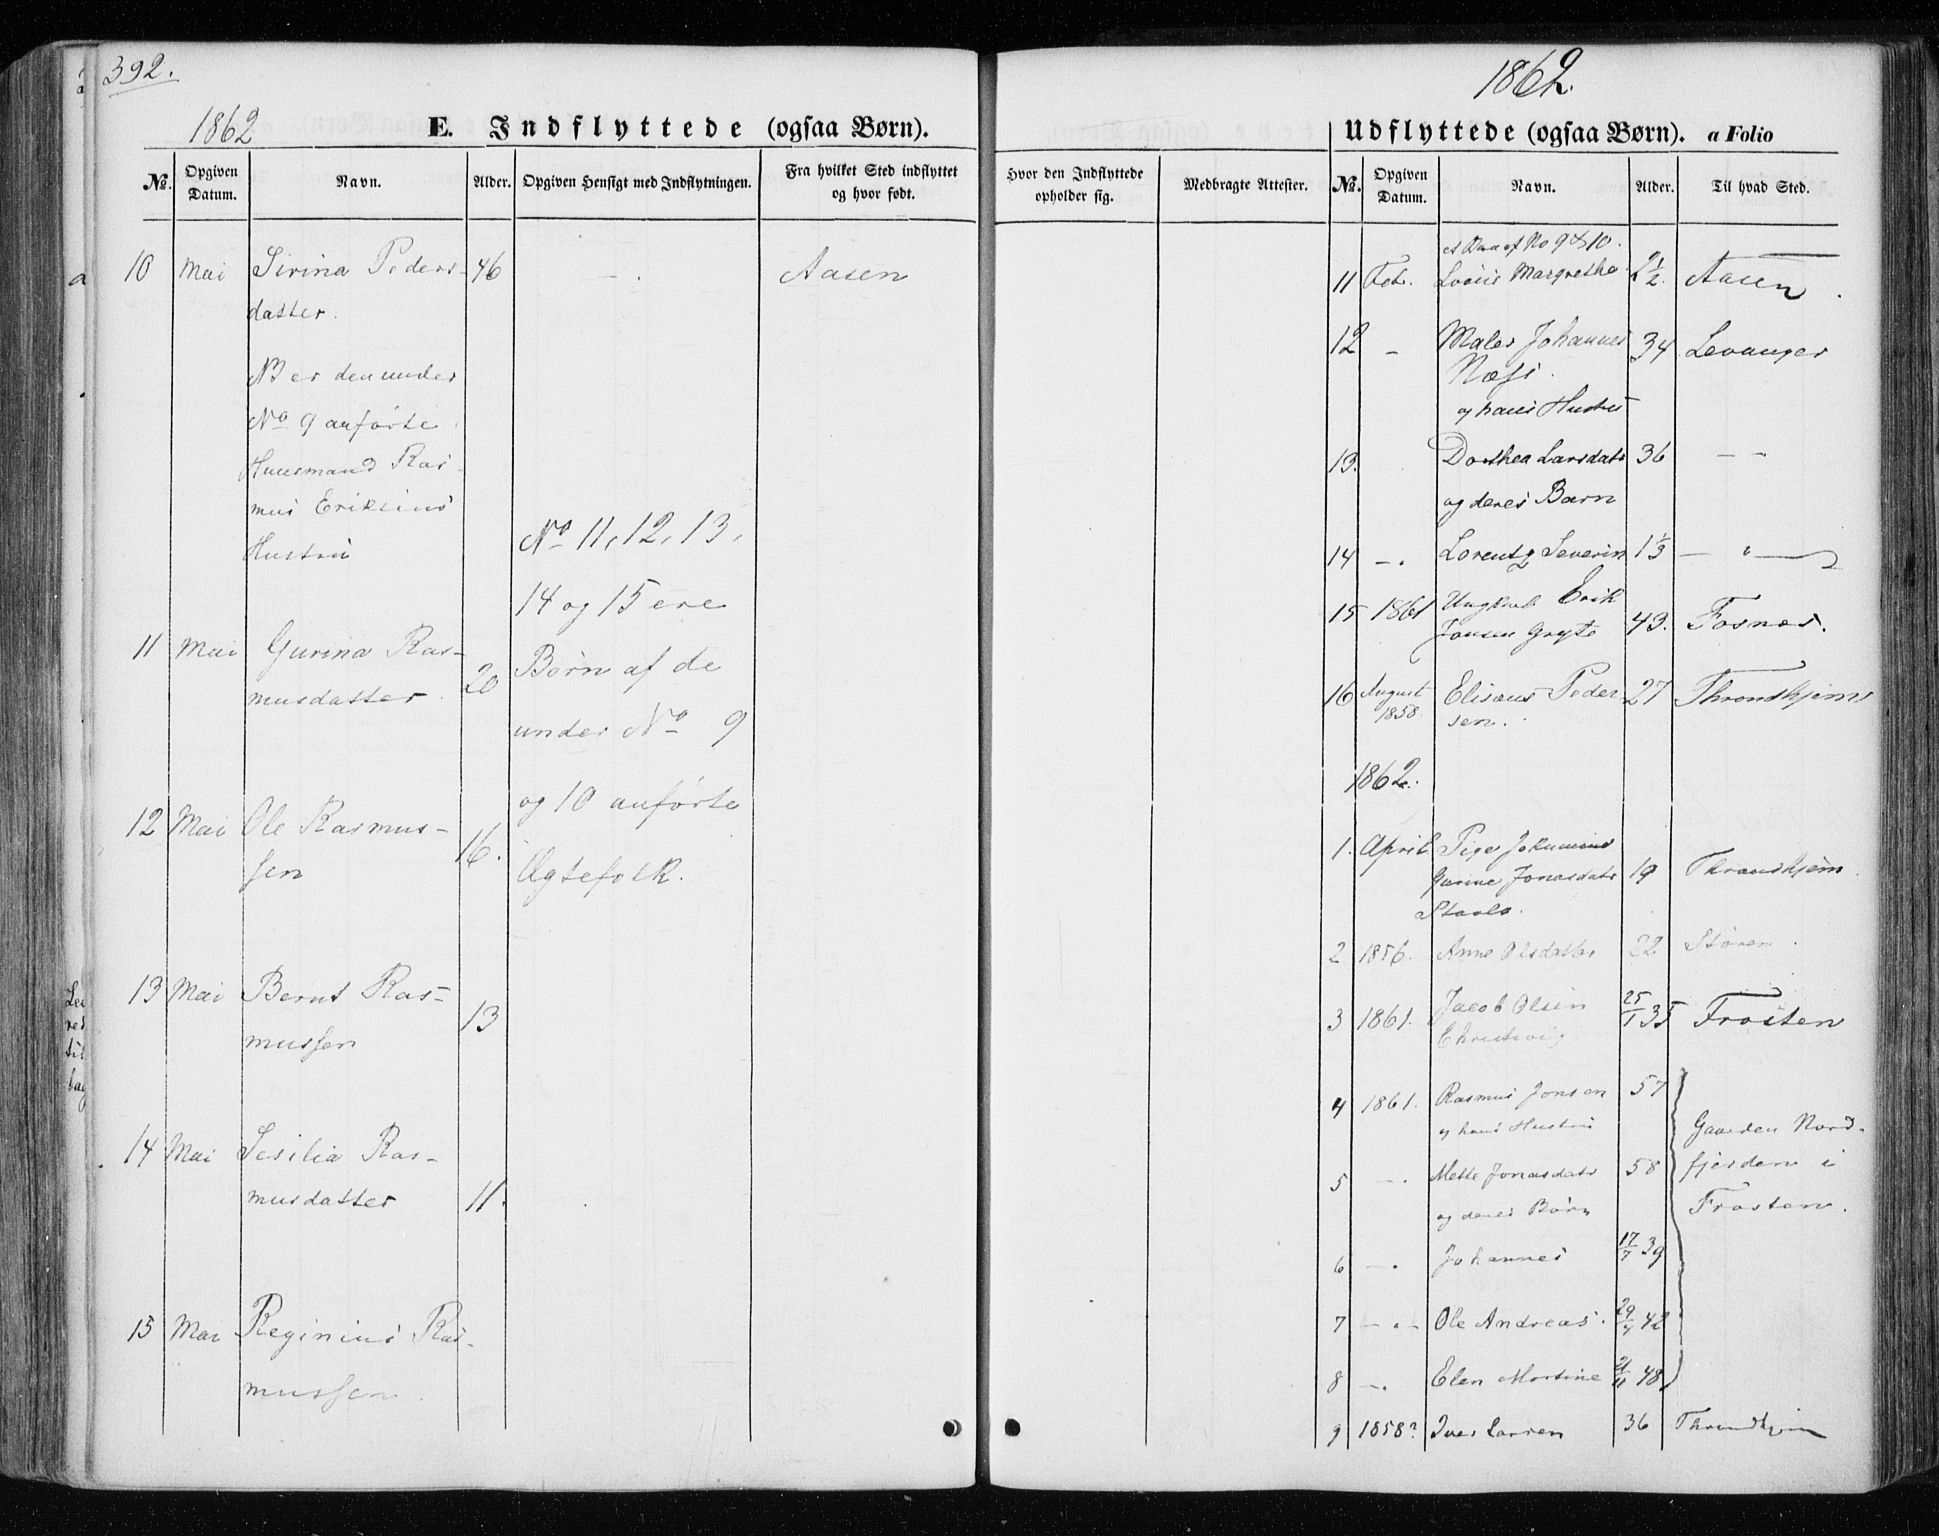 392.
1862
E. Indflyttede (ogsaa Børn).
No.
Opgiven Datum.
Navn.
Alder.
Opgiven Hensigt med Indflytningen.
Fra hvilket Sted indflyttet og hvor født.
10 Mai Sirina Peders- 46 — . Aasen
datter.
NB er den under
No 9 anførte
Huusmand Ras-
mus Eriksens
Hustru
No 11, 12, 13,
14 og 15 ere
Børn af de
under No 9
og 10 anførte
Ægtefolk.
11 Mai Gurina Ras-
musdatter. 20
12 Mai Ole Rasmus-
sen 16.
13 Mai Bernt Ras-
mussen 13
14 Mai Sesilia Ras-
musdatter 11.
15 Mai Reginius Ras-
mussen.
1862.
Hvor den Indflyttede opholder sig.
Medbragte Attester.
Udflyttede (ogsaa Børn). a Folio
No.
Opgiven Datum.
Navn.
Alder.
Til hvad Sted.
af No 9 & 10.
11 Feb. Margrethe 2½. Aasen.
12 – Maler Johannes 34 Levanger
Næss.
og hans Hustru
13. Dorthea Larsdatr 36 — —
og deres Barn
14 —. Lorentz Severin 1⅓ — " —
15 1861 Ungkarl Erik
Jonsen Gryte 43. Fosnes.
16 August 1858 Elisæus Peder 27 Throndhjem
sen.
1862.
1. April Pige
Gurine Jonasdatr 19 Throndhjem.
2 1856. Anne Olsdatter 22 Støren.
3 1861. Jacob Olsen 25/1 35 Frosten
4 1861. Rasmus Jonsen 57
og hans Hustru
5 —. Mette Jonasdatr 58
og deres Børn
Gaarden Nord-
fjorden i
Frosten.
6 —. Johannes 17/7 39
7 — " — Ole Andreas. 29/4 42
8 —. Elen Martine 21/11 48
9 1858? Iver Larsen 36 Throndhjem